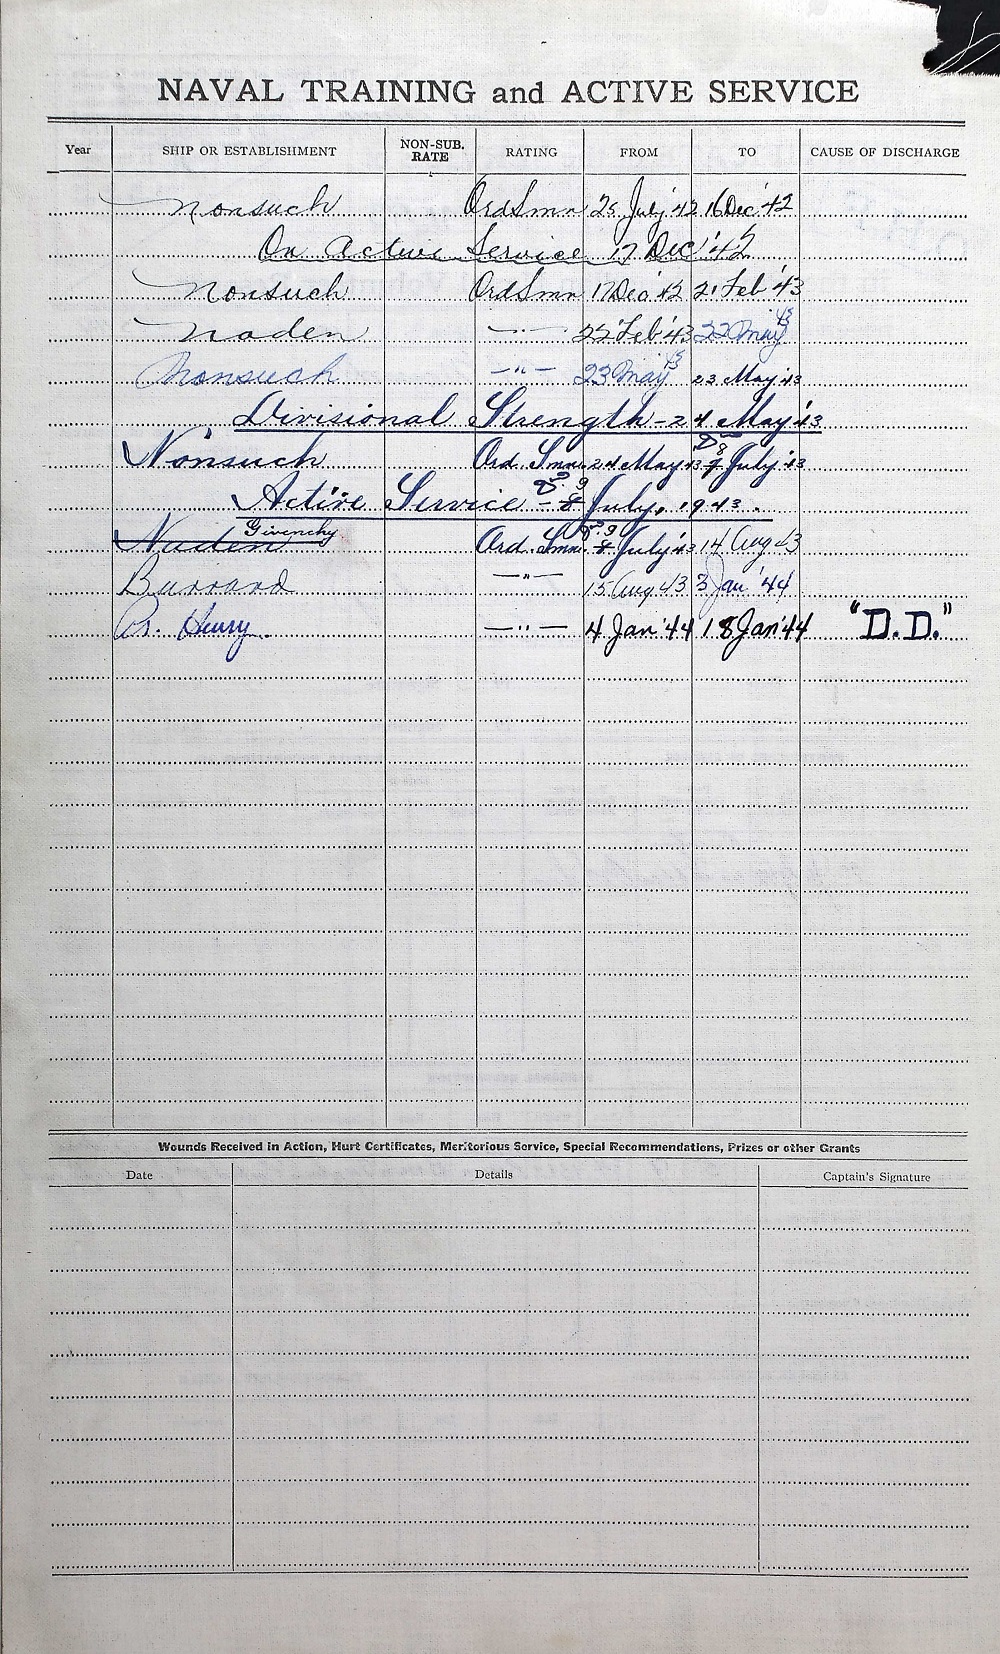 NAVAL TRAINING and ACTIVE SERVICE
Year SHIP OR ESTABLISHMENT NON-SUB. RATE RATING FROM TO CAUSE OF DISCHARGE
Nonsuch OrdSmn 25 July '42 16 Dec '42
On Active Service 17 Dec '42
Nonsuch OrdSmn 17 Dec '42 21 Feb '43
Naden —"— 22 Feb '43 22 May '43
Nonsuch —"— 23 May '43 23 May '43
Divisional Strength - 24 May '43
Nonsuch Ord. Smn. 24 May '43 8 July '43
Active Service - 9 July, 1943.
Naden Givenchy Ord. Smn. 9 July '43 14 Aug 43
Burrard —"— 15 Aug 43 3 Jan '44
Pr. Henry. —"— 4 Jan '44 18 Jan '44 "D.D."
Wounds Received in Action, Hurt Certificates, Meritorious Service, Special Recommendations, Prizes or other Grants
Date Details Captain's Signature